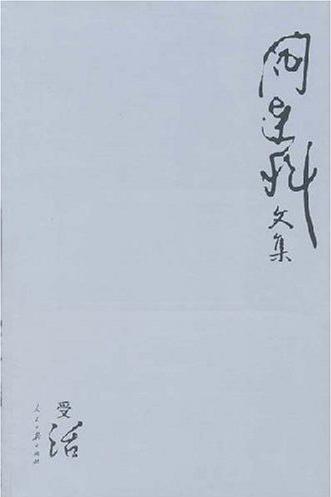 阎连科
文集
受活
人民日报出版社